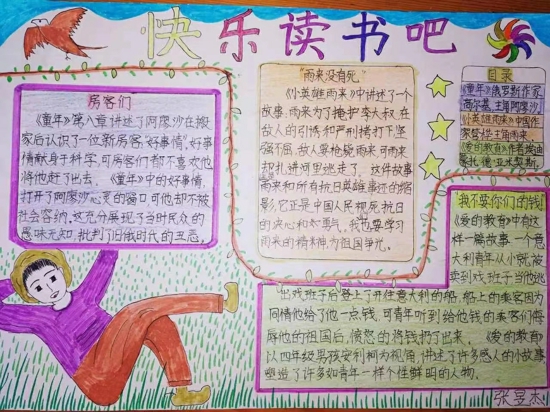 快乐读书吧
房客们
《童年》第八章讲述了阿廖沙在搬
家后认识了一位新房客"好事情"。好事
情献身于科学,可房客们都不喜欢他
将他赶了出去。《童年》中的好事情,
打开了阿廖沙心灵的窗口可他却不被
社会容纳。这充分展现了当时民众的
愚昧无知,批判了旧俄时代的丑恶。
"雨来没有死"
《小英雄雨来》中讲述了一个
故事:雨来为了掩护李大叔,在
敌人的引诱和严刑拷打下坚
强不屈,敌人要枪毙雨来,可雨来
却扎进河里逃走了。这件故事
雨来和所有抗日英雄事迹的缩
影,它正是中国人民抵抗日
的决心和勇气。我也要学习
雨来的精神为祖国争光。
目录
《童年》俄罗斯作家
高尔基,主角阿廖沙
《小英雄雨来》中国作
家管桦主角雨来
《爱的教育》作者埃迪
蒙托·德·亚米契斯
"我不要你们的钱"
《爱的教育》中有这
样一篇故事一个意
大利青年从小就被
卖到戏班子当他逃
出戏班子后登上了开往意大利的船,船上的乘客因为
同情他给了他一点钱,可青年听到给他钱的乘客们侮
辱他的祖国后,愤怒的将钱扔了出来。《爱的教育》
以四年级男孩安利柯为视角,讲述了许多感人的小故事
塑造了许多如青年一样个性鲜明的人物。
张昱杰